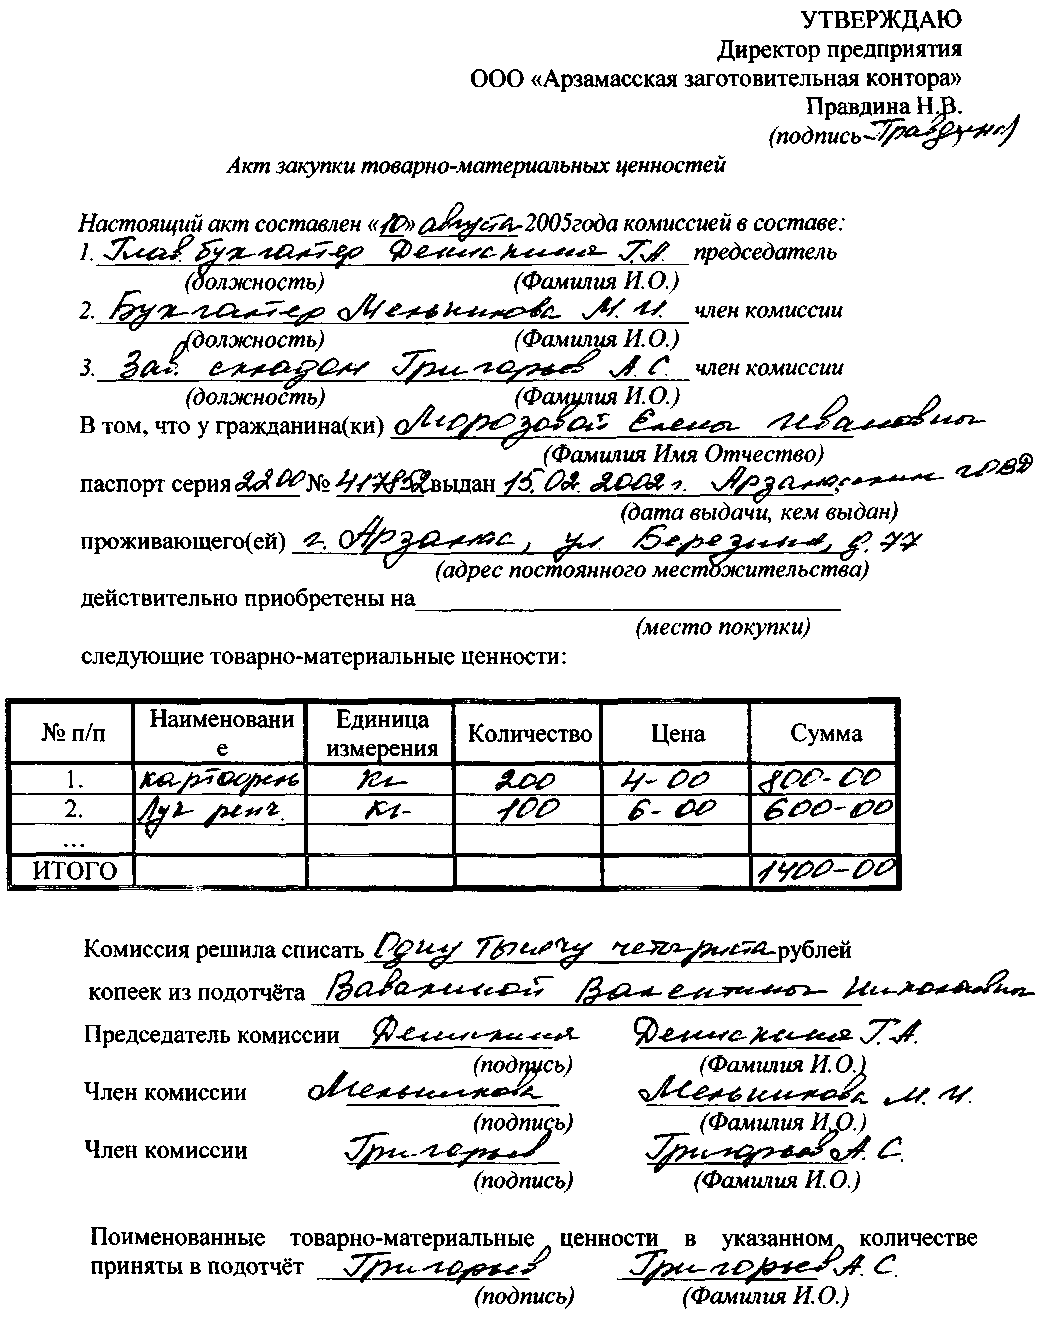 УТВЕРЖДАЮ
Директор предприятия
ООО «Арзамасская заготовительная контора»
Правдина Н.В.
(подпись Правдина)
Акт закупки товарно-материальных ценностей
Настоящий акт составлен «10» августа 2005года комиссией в составе:
1. Глав. бухгалтер Денискина Г.А. председатель
(должность) (Фамилия И.О.)
2. Бухгалтер Мельникова М.И. член комиссии
(должность) (Фамилия И.О.)
3. Зав. складом Григорьев А.С. член комиссии
(должность) (Фамилия И.О.)
В том, что у гражданина(ки) Морозовой Елены Ивановны
(Фамилия Имя Отчество)
паспорт серия 2200 № 417852 выдан 15.02.2002 г. Арзамасским ГОВД
(дата выдачи, кем выдан)
проживающего(ей) г. Арзамас, ул. Березина, д. 77
(адрес постоянного местожительства)
действительно приобретены на
(место покупки)
следующие товарно-материальные ценности:
№ п/п Наименовани е Единица измерения Количество Цена Сумма
1. картофель кг 200 4-00 800-00
2. Лук репч. кг 100 6-00 600-00
...
ИТОГО 1400-00
Комиссия решила списать Одну тысячу четыреста рублей
копеек из подотчёта Вавакиной Валентины Николаевны
Председатель комиссии Денискина Денискина Г.А.
(подпись) (Фамилия И.О.)
Член комиссии Мельникова Мельникова М.И.
(подпись) (Фамилия И.О.)
Член комиссии Григорьев Григорьев А.С.
(подпись) (Фамилия И.О.)
Поименованные товарно-материальные ценности в указанном количестве
приняты в подотчёт Григорьев Григорьев А.С.
(подпись) (Фамилия И.О.)